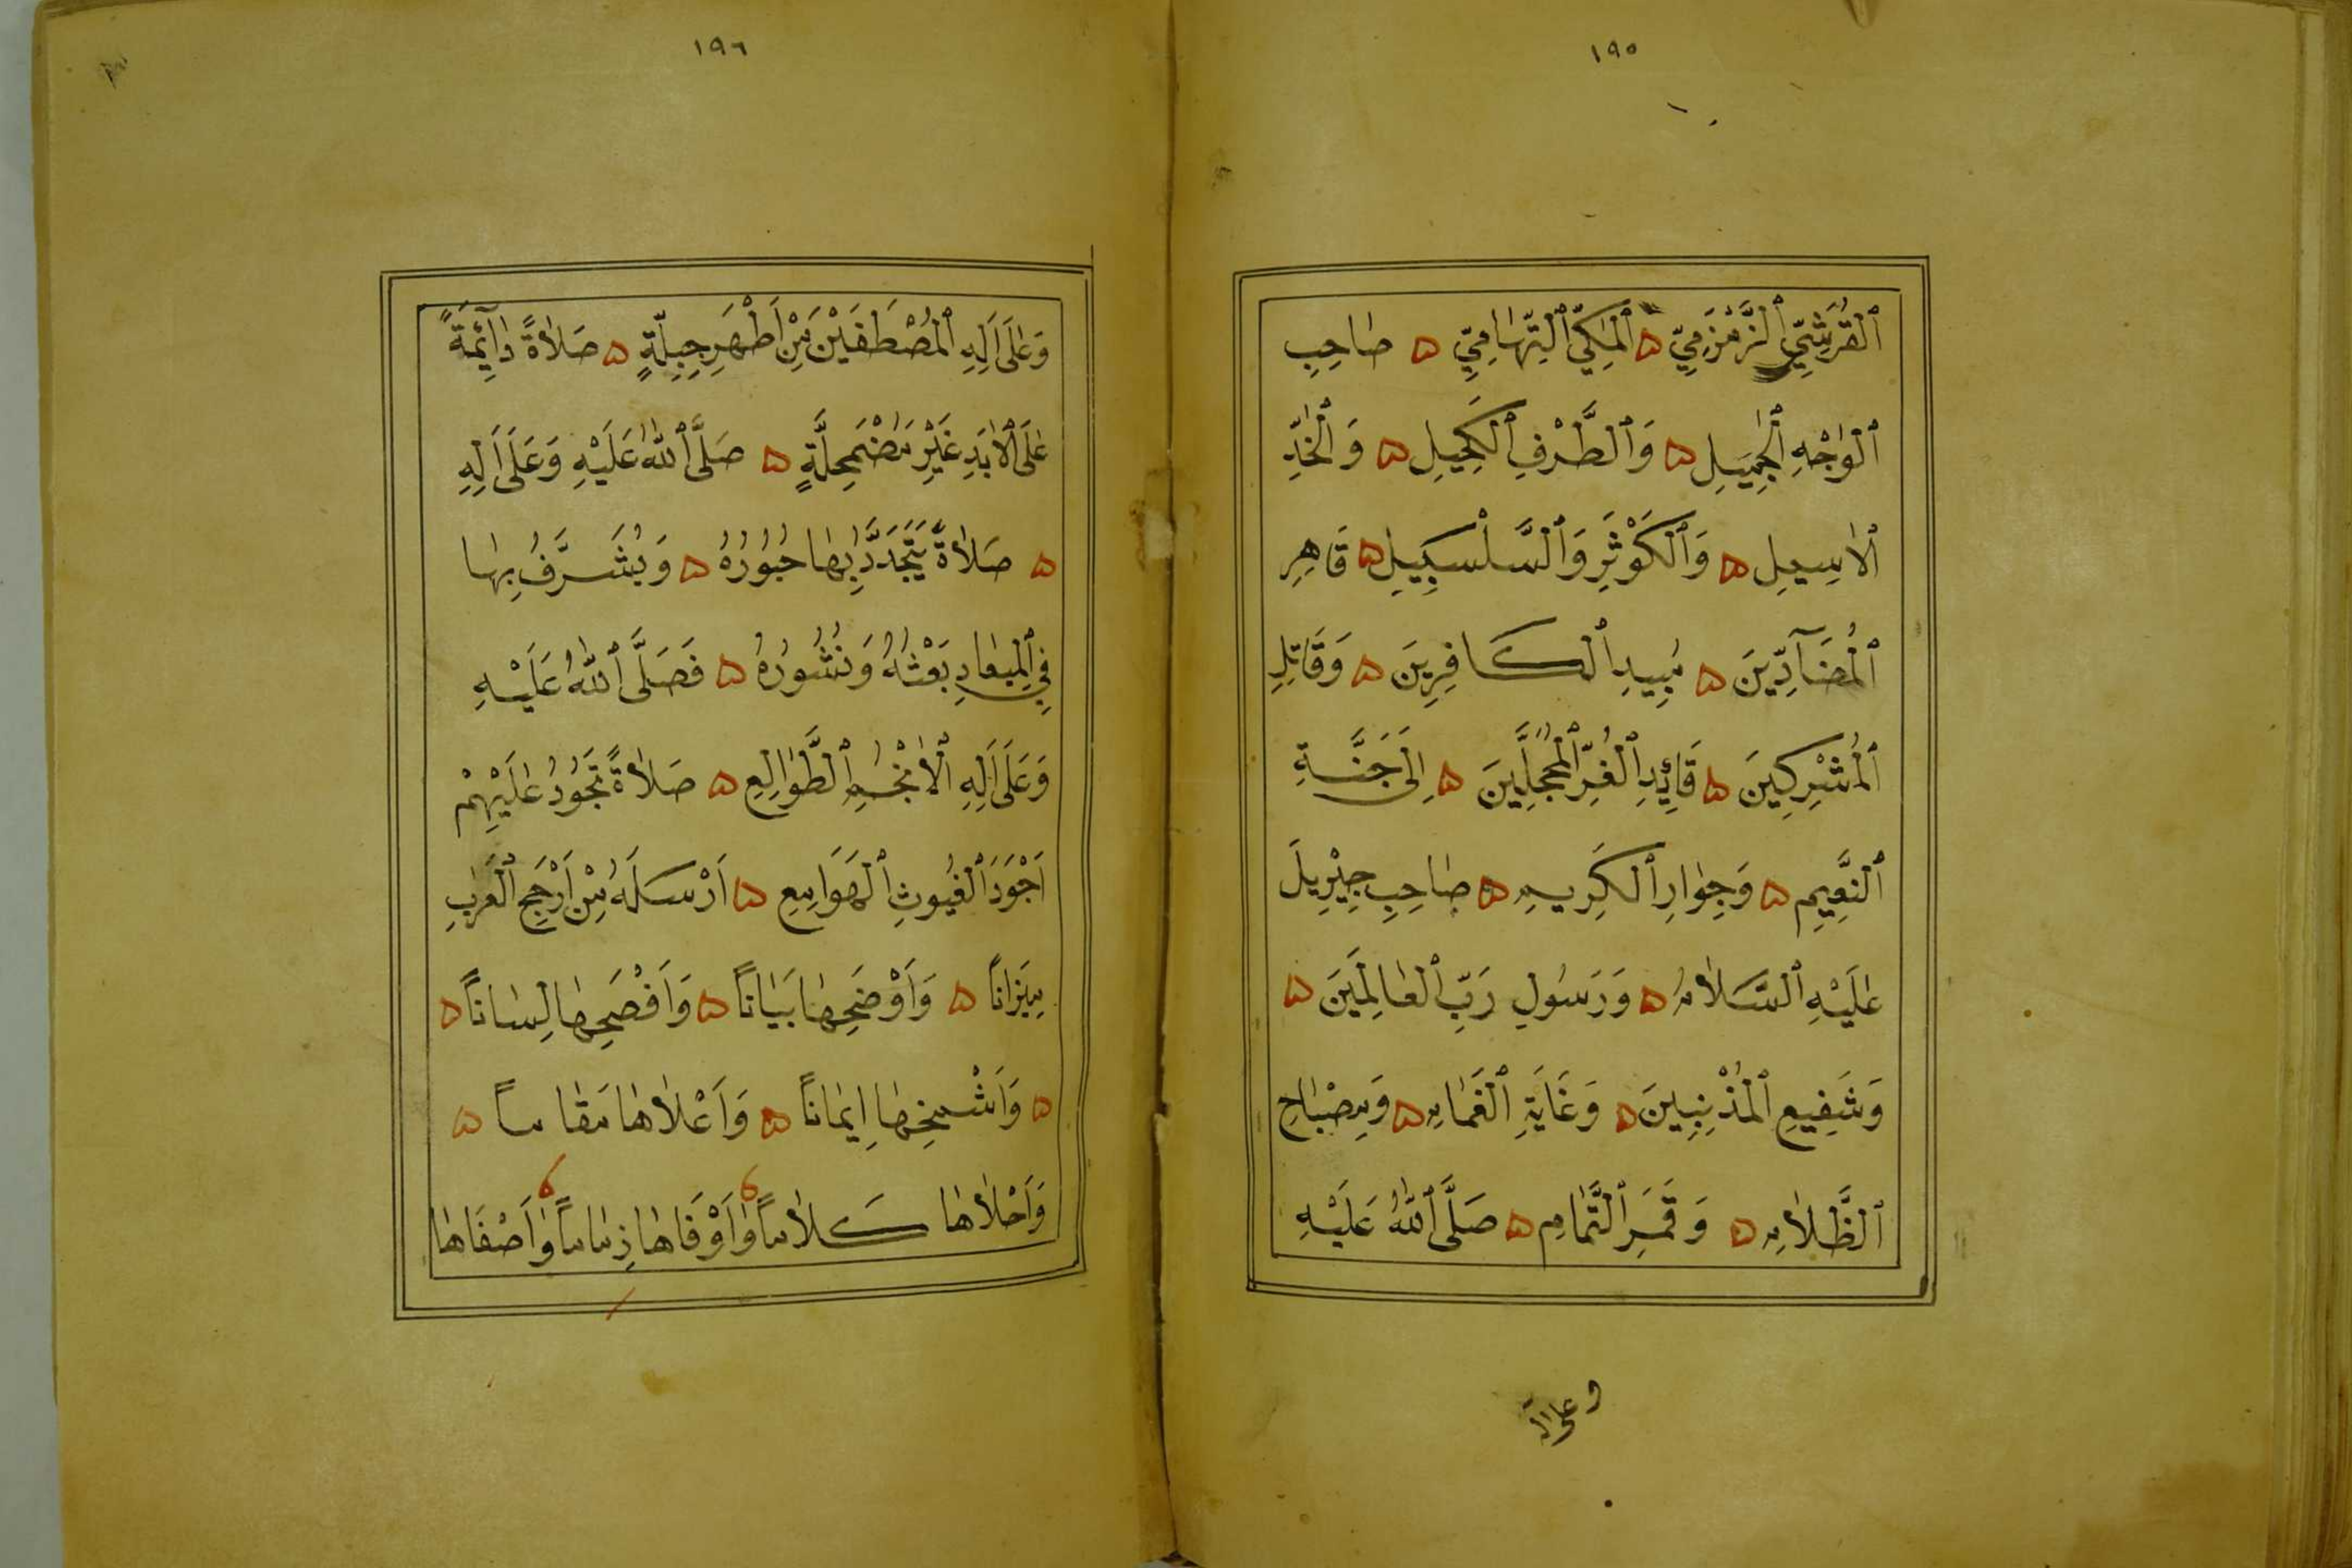 ١٩٥
ٱلْقُرَشِيِّ ٱلزَّمْزَمِيِّ ۵ ٱلْمَكِّيِّ ٱلتِّهَامِيِّ ۵ صَاحِبِ
ٱلْوَجْهِ ٱلْجَمِيلِ ۵ وَٱلطَّرْفِ ٱلْكَحِيلِ ۵ وَٱلْخَدِّ
ٱلْاَسِيلِ ۵ وَٱلْكَوْثَرِ وَٱلسَّلْسَبِيلِ ۵ قَاهِرِ
ٱلْمُضَآدِّينَ ۵ مُبِيدِ ٱلْكَافِرِينَ ۵ وَقَاتِلِ
ٱلْمُشْرِكِينَ ۵ قَائِدِ ٱلْغُرِّ ٱلْمُحَجَّلِينَ ۵ اِلَى جَنَّةِ
ٱلنَّعِيمِ ۵ وَجِوَارِ ٱلْكَرِيمِ ۵ صَاحِبِ جِبْرِيلَ
عَلَيْهِ ٱلسَّلَامُ ۵ وَرَسُولِ رَبِّ ٱلْعَالَمِينَ ۵
وَشَفِيعِ ٱلْمُذْنِبِينَ ۵ وَغَايَةِ ٱلْغَمَامِ ۵ وَمِصْبَاحِ
ٱلظَّلَامِ ۵ وَقَمَرِ ٱلتَّمَامِ ۵ صَلَّى ٱللّٰهُ عَلَيْهِ
١٩٦
وَعَلَى اَلِهِ ٱلْمُصْطَفَيْنَ مِنْ اَطْهَرِ جِبِلَّةٍ ۵ صَلَاةً دَآئِمَةً
عَلَى ٱلْاَبَدِ غَيْرَ مُضْمَحِلَّةٍ ۵ صَلَّى ٱللّٰهُ عَلَيْهِ وَعَلَى اَلِهِ
۵ صَلَاةً يَتَجَدَّدُ بِهَا حُبُورُهُ ۵ وَيُشَرَّفُ بِهَا
فِي ٱلْمِيعَادِ بَعْثُهُ وَنُشُورُهُ ۵ فَصَلَّى ٱللّٰهُ عَلَيْهِ
وَعَلَى اَلِهِ ٱلْاَنْجُمِ ٱلطَّوَالِعِ ۵ صَلَاةً تَجُودُ عَلَيْهِمْ
اَجْوَدَ ٱلْغُيُوثِ ٱلْهَوَامِعِ ۵ اَرْسَلَهُ مِنْ اَرْجَحِ ٱلْعَرَبِ
مِيزَانًا ۵ وَاَوْضَحِهَا بَيَانًا ۵ وَاَفْصَحِهَا لِسَانًا ۵
۵ وَاَشْمَخِهَا اِيمَانًا ۵ وَاَعْلَاهَا مَقَامًا ۵
وَاَحْلَاهَا كَلَامًا وَاَوْفَاهَا ذِمَامًا وَاَصْفَاهَا